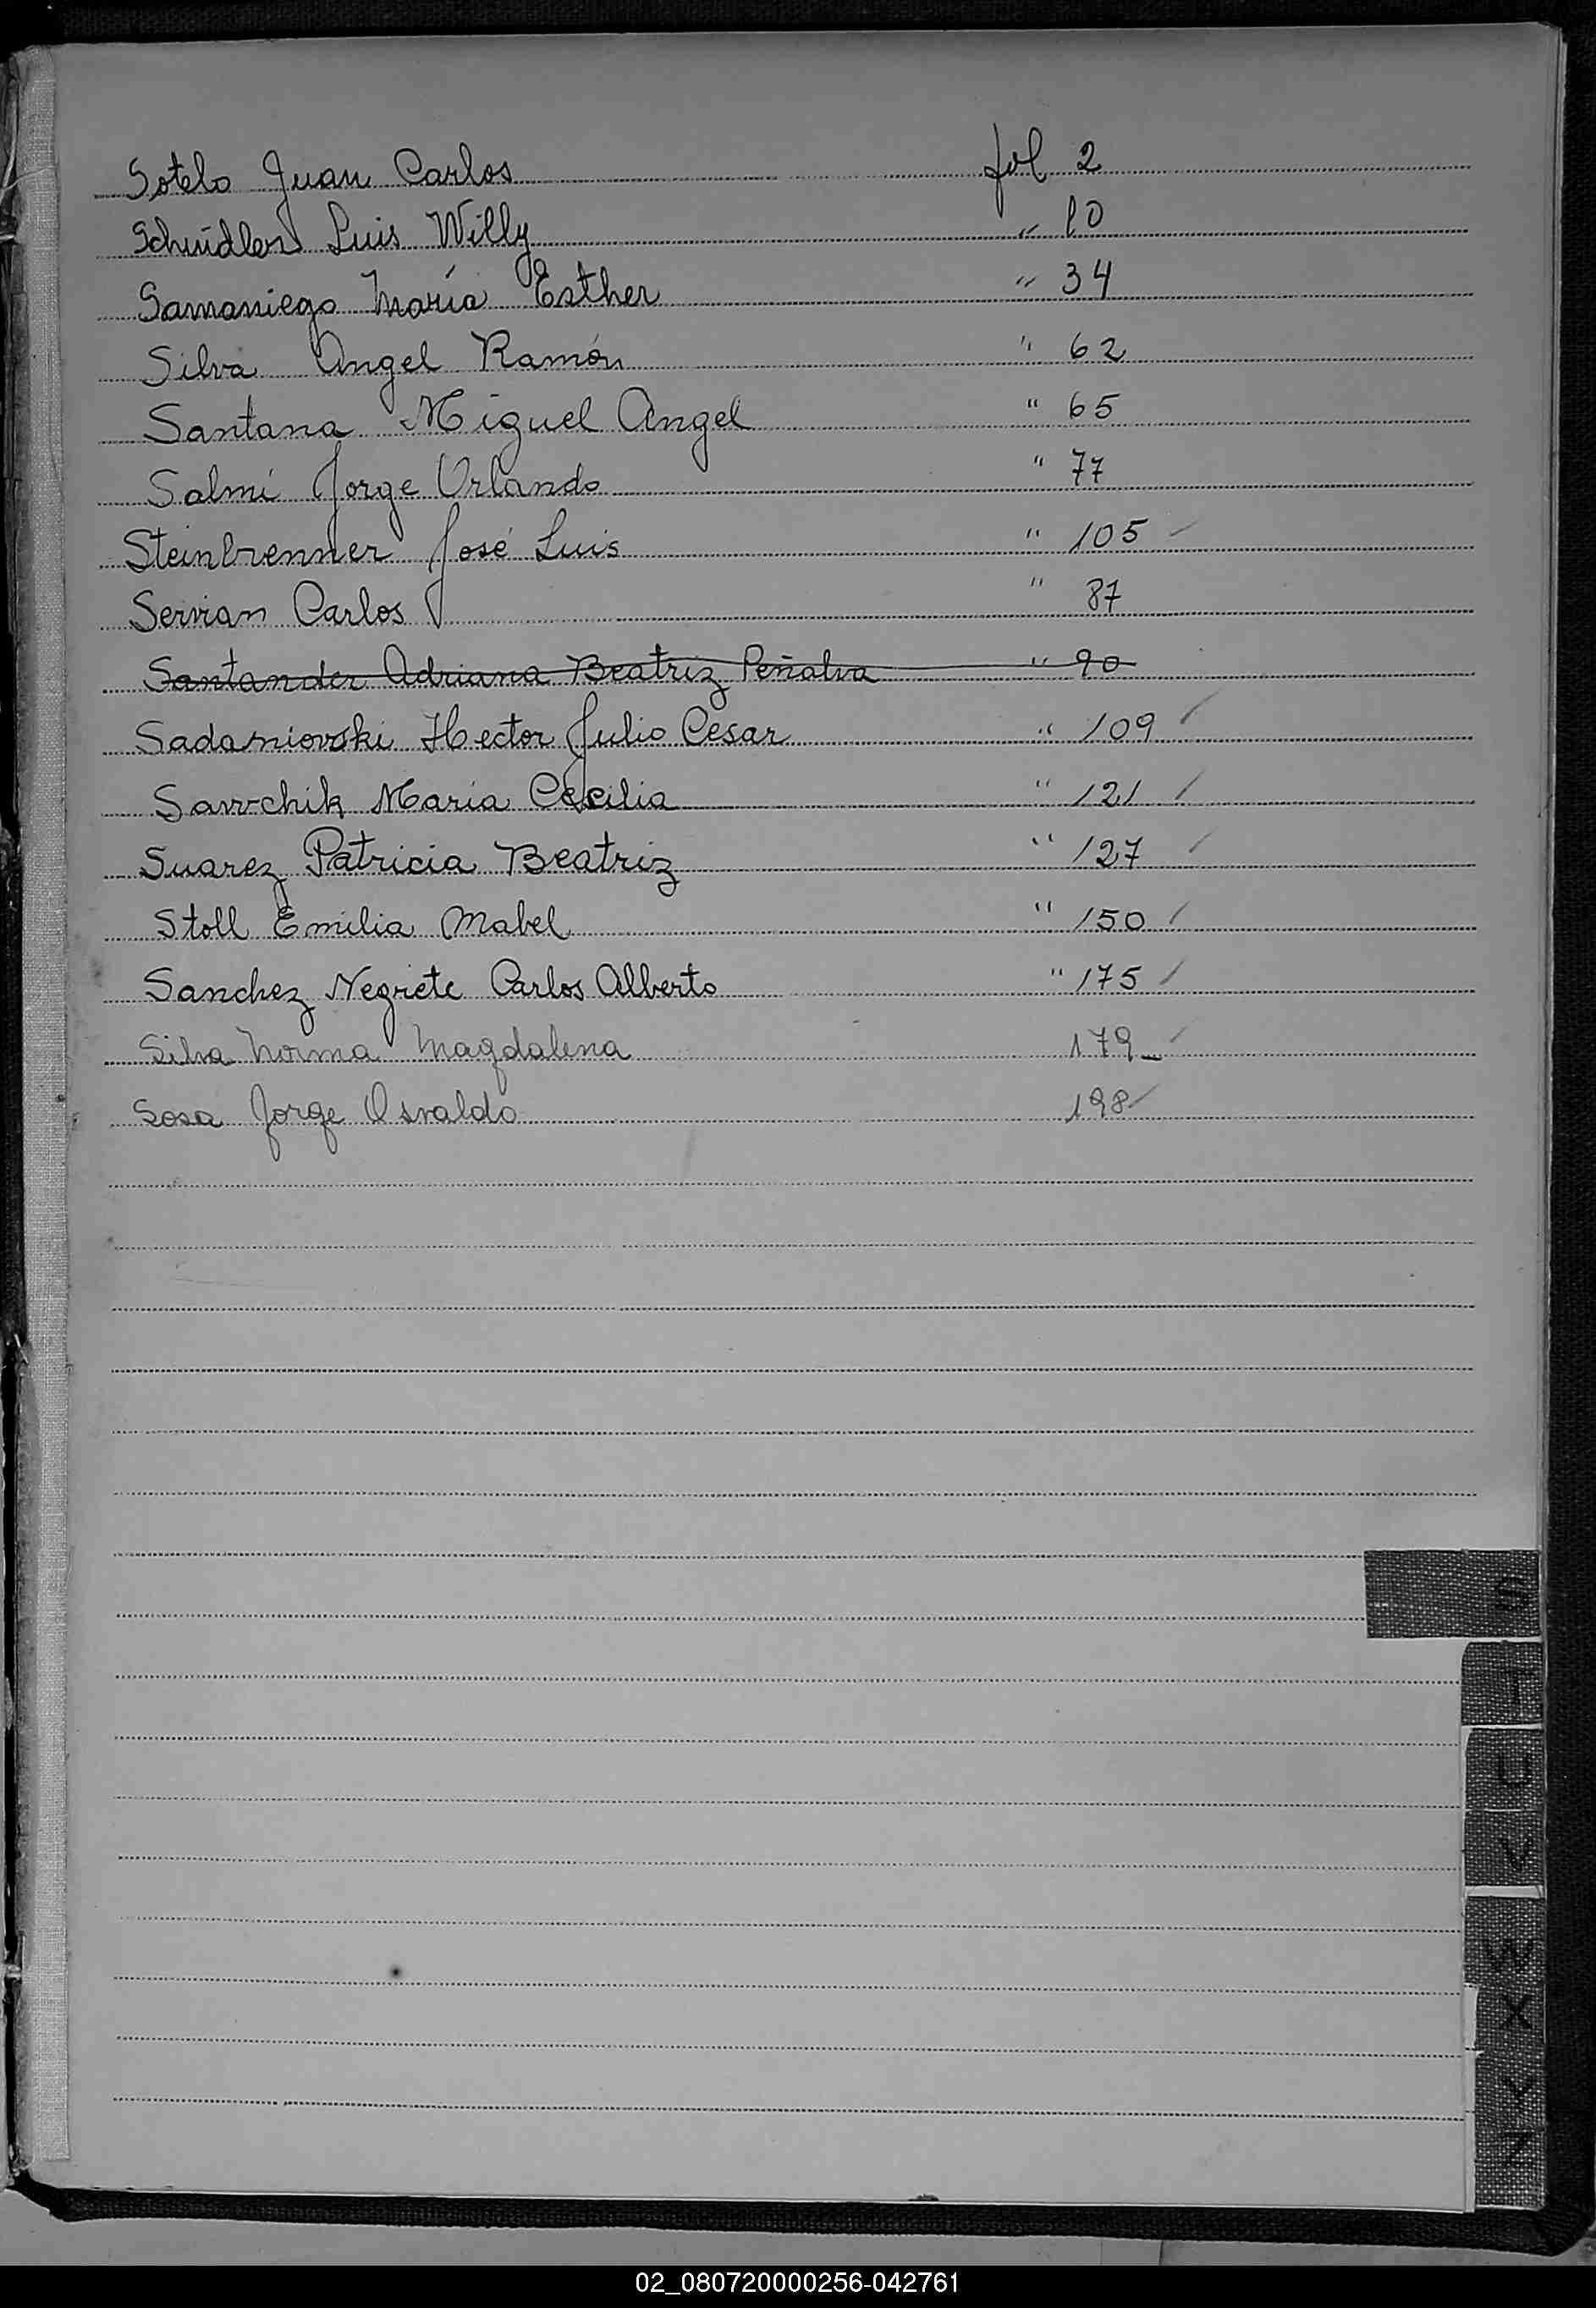 Sotelo Juan Carlos fol 2
Schnidler Luis Willy " 10
Samaniego María Esther " 34
Silva Angel Ramón " 62
Santana Miguel Angel " 65
Salmi Jorge Orlando " 77
Steinbrenner José Luis " 105
Servian Carlos " 87
Santander Adriana Beatriz Peñalva " 90
Sadaniovski Hector Julio Cesar " 109
Sawchik Maria Cecilia " 121
Suarez Patricia Beatriz " 127
Stoll Emilia Mabel " 150
Sanchez Negrete Carlos Alberto " 175
Silva Norma Magdalena 179
Sosa Jorge Osvaldo 198
S
T
U
V
W
X
Y
Z
02_080720000256-042761